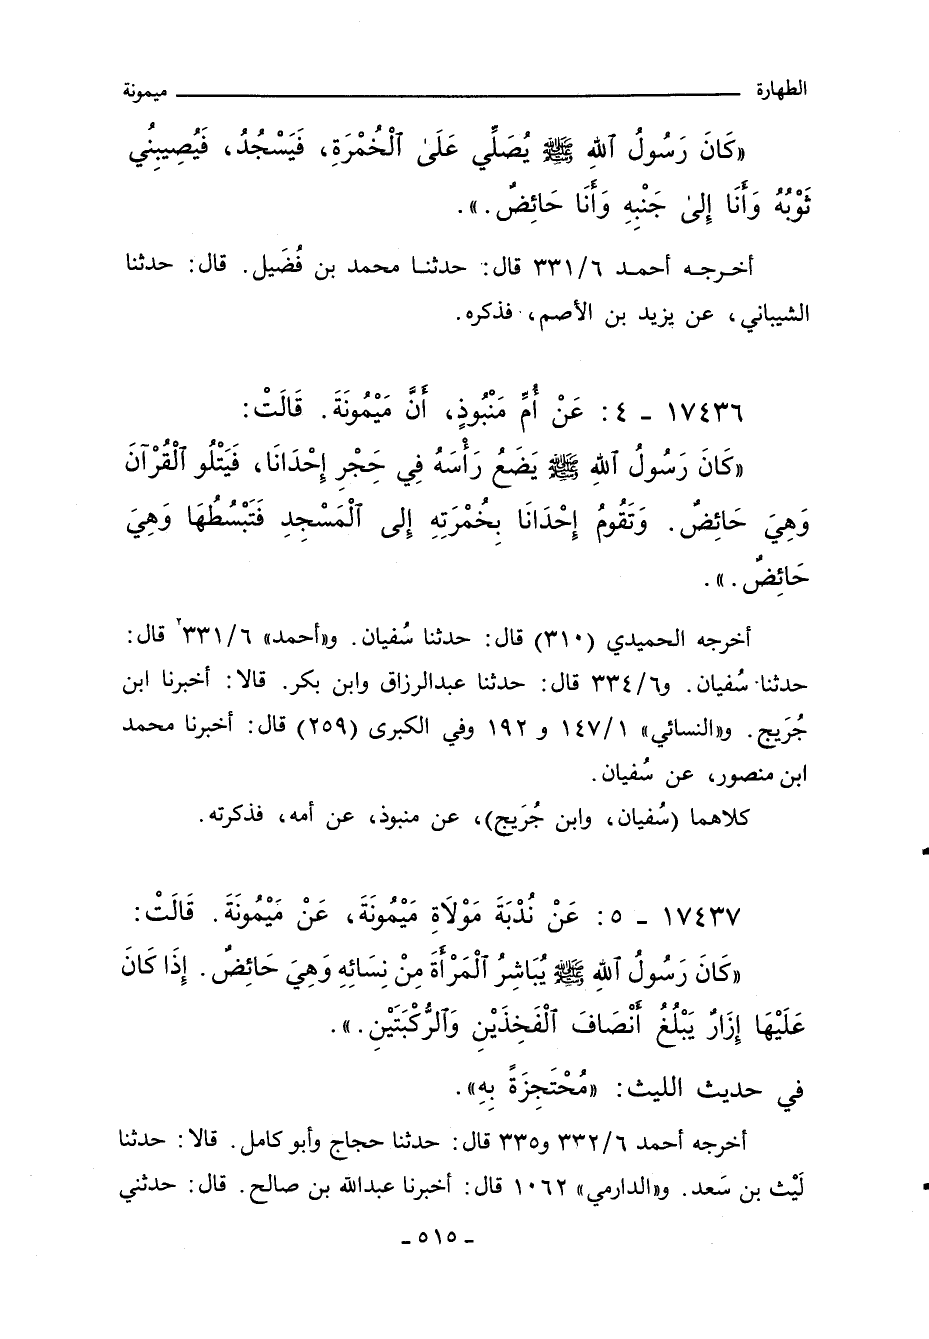 الطهارة ميمونة
«كَانَ رَسُولُ ٱللهِ ﷺ يُصَلِّي عَلَىٰ ٱلْخُمْرَةِ، فَيَسْجُدُ، فَيُصِيبُنِي
ثَوْبُهُ وَأَنَا إِلىٰ جَنْبِهِ وَأَنَا حَائِضٌ.».
أخرجه أحمد ٣٣١/٦ قال: حدثنا محمد بن فُضَيل. قال: حدثنا
الشيباني، عن يزيد بن الأصم، فذكره.
١٧٤٣٦ - ٤: عَنْ أُمِّ مَنْبُوذٍ، أَنَّ مَيْمُونَةَ. قَالَتْ:
«كَانَ رَسُولُ ٱللهِ ﷺ يَضَعُ رَأْسَهُ فِي حَجْرِ إِحْدَانَا، فَيَتْلُو ٱلْقُرْآنَ
وَهِيَ حَائِضٌ. وَتَقُومُ إِحْدَانَا بِخُمْرَتِهِ إِلى ٱلْمَسْجِدِ فَتَبْسُطُهَا وَهِيَ
حَائِضٌ.».
أخرجه الحميدي (٣١٠) قال: حدثنا سُفيان. و«أحمد» ٣٣١/٦ قال:
حدثنا سُفيان. و٣٣٤/٦ قال: حدثنا عبدالرزاق وابن بكر. قالا: أخبرنا ابن
جُرَيج. و«النسائي» ١٤٧/١ و ١٩٢ وفي الكبرى (٢٥٩) قال: أخبرنا محمد
ابن منصور، عن سُفيان.
كلاهما (سُفيان، وابن جُرَيج)، عن منبوذ، عن أمه، فذكرته.
١٧٤٣٧ - ٥: عَنْ نُدْبَةَ مَوْلَاةِ مَيْمُونَةَ، عَنْ مَيْمُونَةَ. قَالَتْ:
«كَانَ رَسُولُ ٱللهِ ﷺ يُبَاشِرُ ٱلْمَرْأَةَ مِنْ نِسَائِهِ وَهِيَ حَائِضٌ. إِذَا كَانَ
عَلَيْهَا إِزَارٌ يَبْلُغُ أَنْصَافَ ٱلْفَخِذَيْنِ وَٱلرُّكْبَتَيْنِ.».
في حديث الليث: «مُحْتَجِزَةً بِهِ».
أخرجه أحمد ٣٣٢/٦ و٣٣٥ قال: حدثنا حجاج وأبو كامل. قالا: حدثنا
لَيْث بن سَعد. و«الدارمي» ١٠٦٢ قال: أخبرنا عبدالله بن صالح. قال: حدثني
- ٥١٥ -